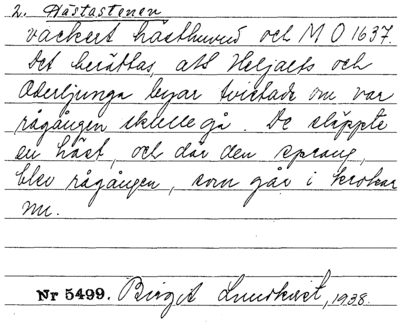 2. Hästastenen
vackert hästhuvud och M O 1637.
Det berättas, att Heljalts och
Oderljunga byar tvistade om var
rågången skulle gå. De släppte
en häst, och där den sprang,
blev rågången, som går i krokar
nu.
Nr 5499. Birgit Lundkvist, 1938.